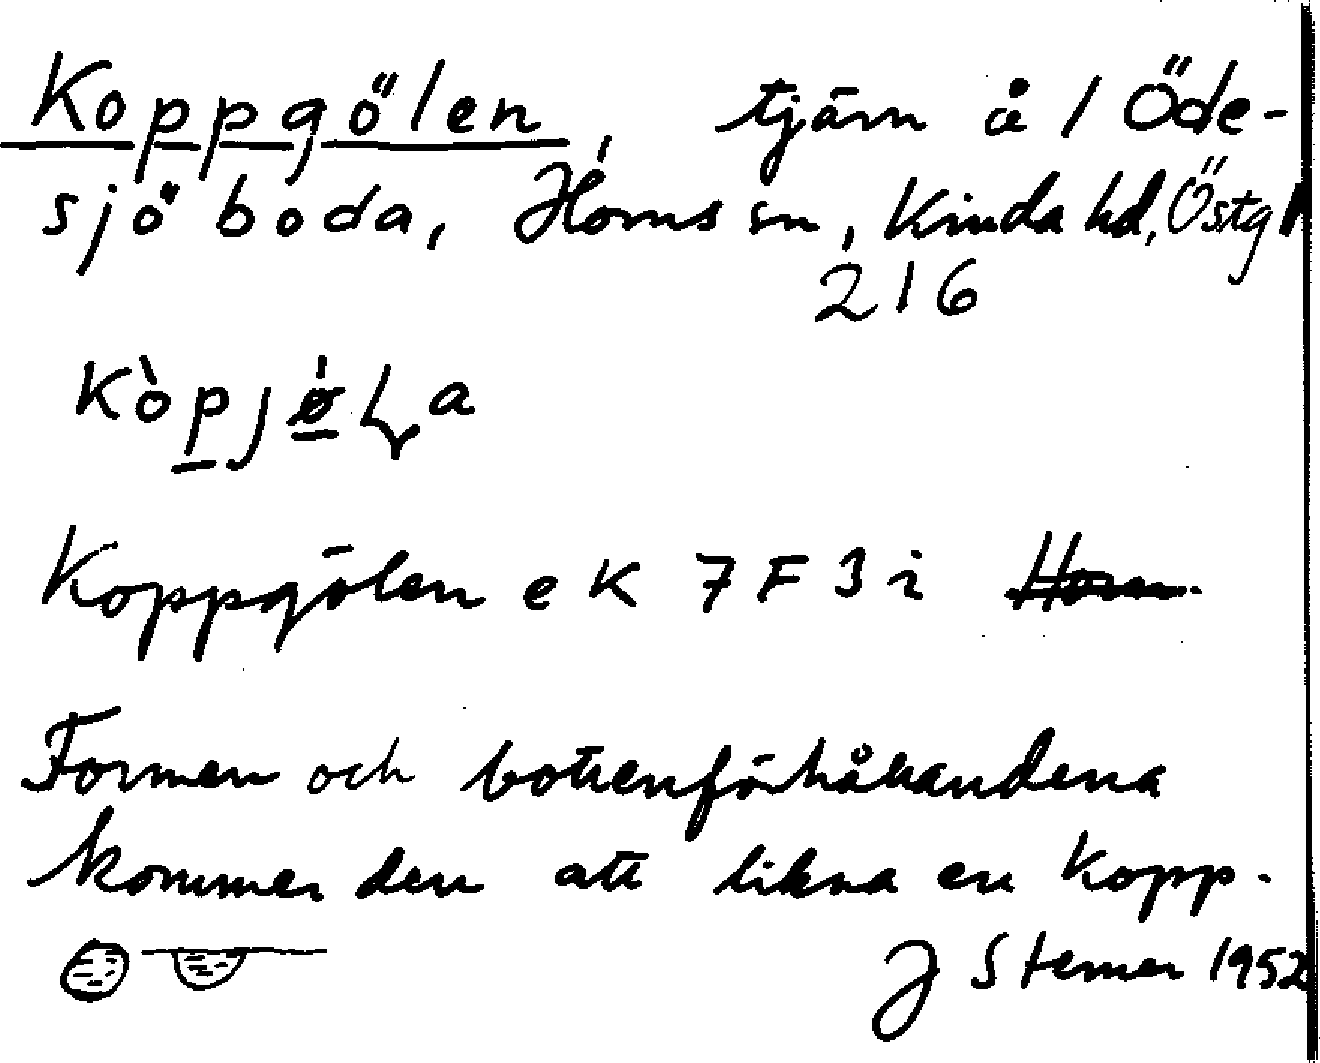 Koppgölen, tjärn å 1 Öde-
sjöboda, Horns sn, Kinda hd, Östgl
216
Koppgölen ek 7F3i Horn
Formen och bottenförhållandena
kommer den att likna en kopp.
J Sterner 1952